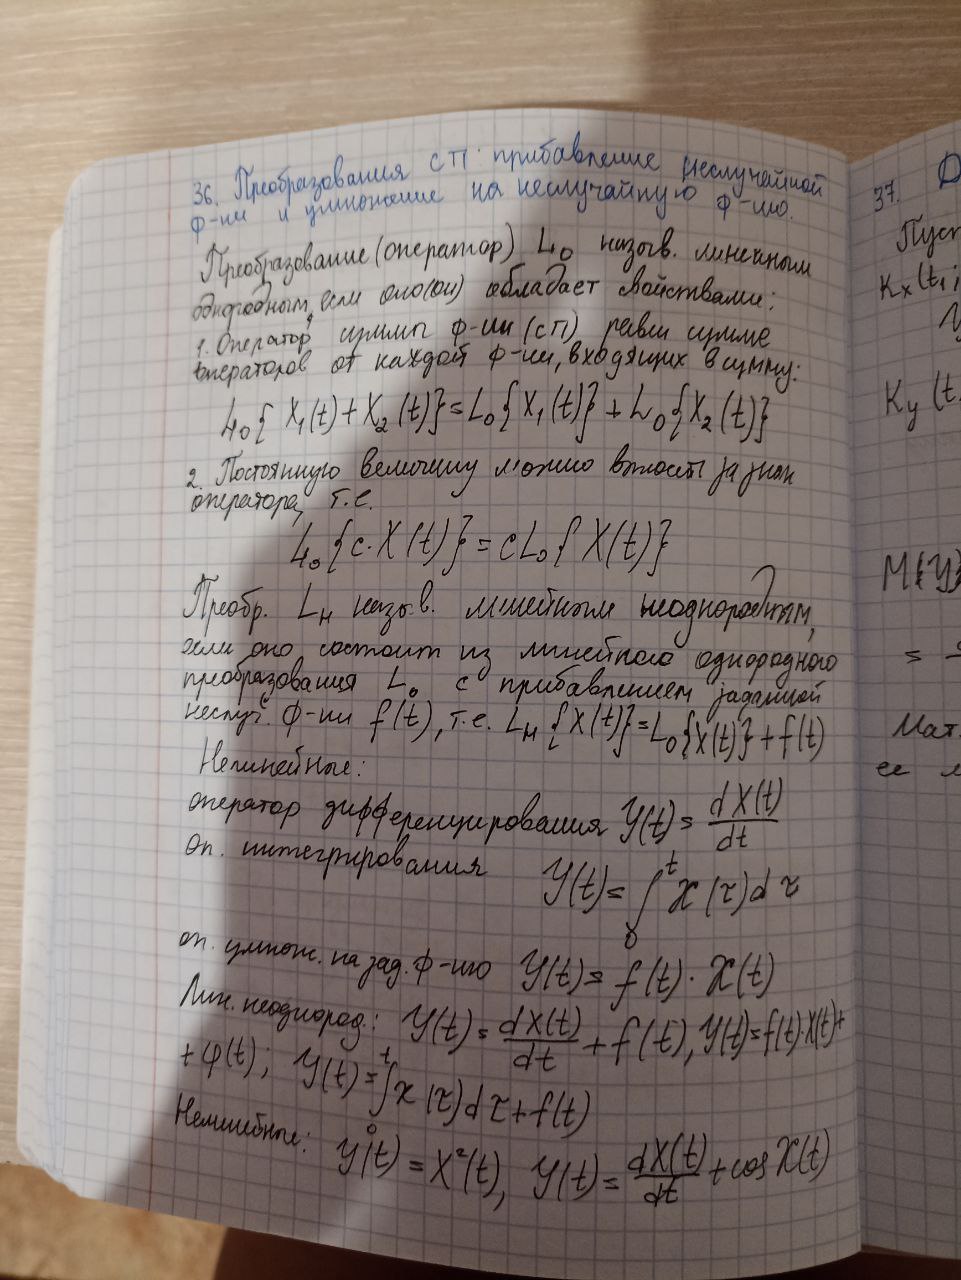 36. Преобразования СП: прибавление неслучайной
ф-ии и умножение на неслучайную ф-ию.
Преобразование (оператор) L₀ назыв. линейным
однородным, если оно(он) обладает свойствами:
1. Оператор суммы ф-ии (СП) равен сумме
операторов от каждой ф-ии, входящих в сумму:
L₀{X₁(t)+X₂(t)}=L₀{X₁(t)}+L₀{X₂(t)}
2. Постоянную величину можно вносить за знак
оператора, т.е.
L₀{c·X(t)}=cL₀{X(t)}
Преобр. Lн назыв. линейным неоднородным,
если оно состоит из линейного однородного
преобразования L₀ с прибавлением заданной
неслуч. ф-ии f(t), т.е. Lн{X(t)}=L₀{X(t)}+f(t)
Нелинейные:
оператор дифференцирования Y(t)= dX(t)/dt
Оп. интегрирования Y(t)=∫₀ᵗ X(τ)dτ
оп. умнож. на зад. ф-ию Y(t)= f(t)·X(t)
Лин. неоднород.: Y(t)= dX(t)/dt + f(t), Y(t)=f(t)·X(t)+
+φ(t); Y(t)=∫₀ᵗ x(τ)dτ+f(t)
Нелинейные: Y(t)=X²(t), Y(t)= dX(t)/dt +cos X(t)
37.
Пуст
Kₓ(t₁;
Y
Kᵧ(t
M{Y}
=
Мат.
ее